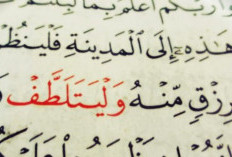 وا رَبُّكُمْ أَعْلَمُ بِمَا لَبِثْتُمْ
هَٰذِهِ إِلَى ٱلْمَدِينَةِ فَلْيَنظُ
رِزْقٍ مِّنْهُ وَلْيَتَلَطَّفْ